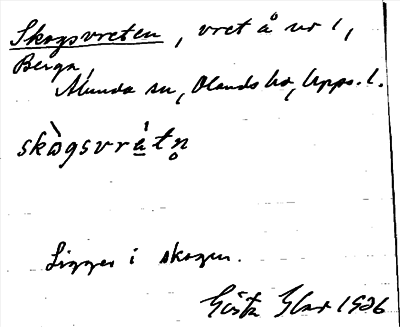 Skogsvreten, vret å nr 1,
Berga,
Munda sn, Olands hd, Upps. l.
skògsvrét̥n̥
Ligger i skogen.
Gösta 1926